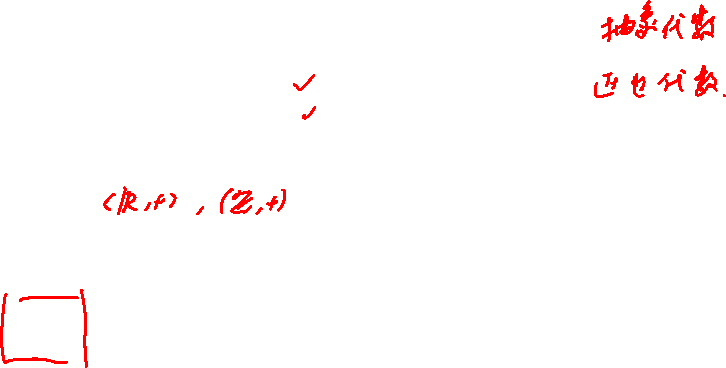 抽象代数
近世代数.
✓
✓
(ℝ,+), (ℤ,+)